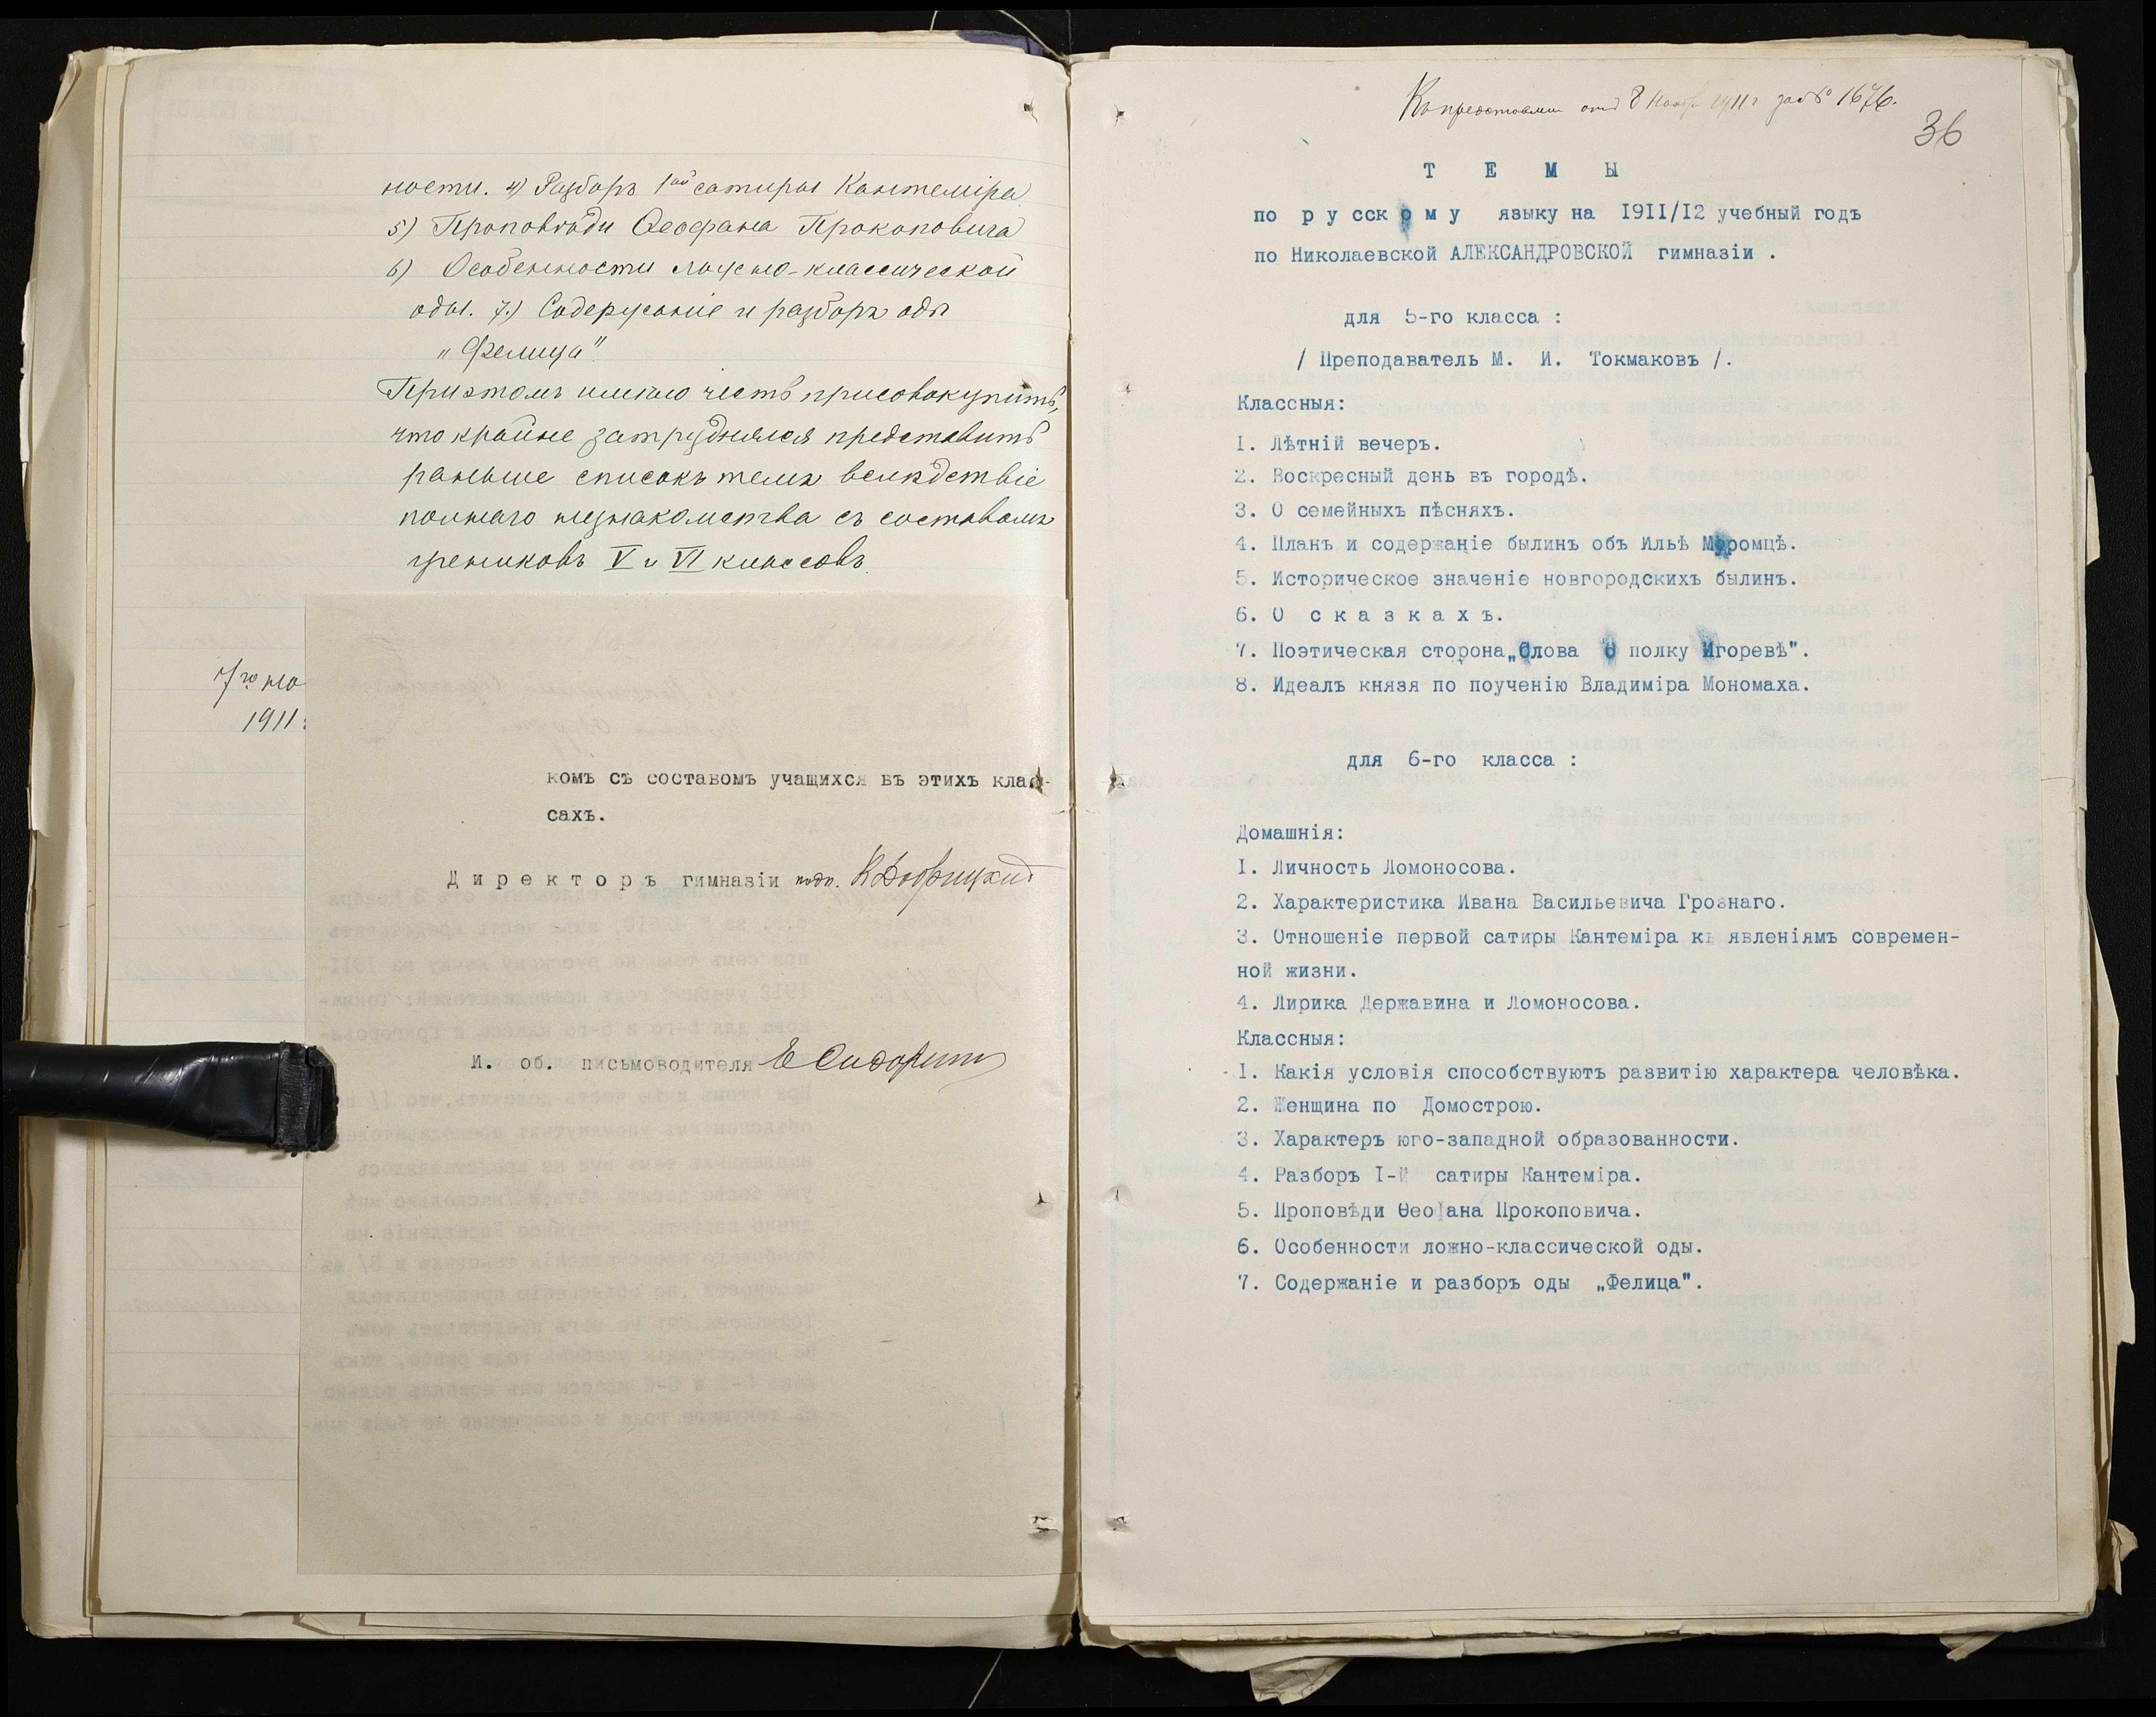 ности. 4) Разборъ 1ой сатиры Кантеміра
5) Проповѣди Ѳеофана Прокоповича
6) Особенности ложно-классической
оды. 7.) Содержаніе и разборъ оды
„Фелица"
При этомъ имѣю честь присовокупить,
что крайне затруднялся представить
раньше списокъ темъ вслѣдствіе
полнаго незнакомства съ составомъ
учениковъ V и VI классовъ.
7го но
1911
комъ съ составомъ учащихся въ этихъ клас-
сахъ.
Директоръ гимназіи подп.
И. об. письмоводителя Е Сидорин
Къ представлен отъ 8 Ноября 1911 г за № 1676.
36
ТЕМЫ
по русскому языку на 1911/12 учебный годъ
по Николаевской АЛЕКСАНДРОВСКОЙ гимназіи .
для 5-го класса :
/ Преподаватель М. И. Токмаковъ /.
Классныя:
I. Лѣтній вечеръ.
2. Воскресный день въ городѣ.
3. О семейныхъ пѣсняхъ.
4. Планъ и содержаніе былинъ объ Ильѣ Муромцѣ.
5. Историческое значеніе новгородскихъ былинъ.
6. О сказкахъ.
7. Поэтическая сторона „Слова О полку Игоревѣ".
8. Идеалъ князя по поученію Владиміра Мономаха.
для 6-го класса :
Домашнія:
I. Личность Ломоносова.
2. Характеристика Ивана Васильевича Грознаго.
3. Отношеніе первой сатиры Кантеміра къ явленіямъ современ-
ной жизни.
4. Лирика Державина и Ломоносова.
Классныя:
I. Какія условія способствуютъ развитію характера человѣка.
2. Женщина по Домострою.
3. Характеръ юго-западной образованности.
4. Разборъ I-й сатиры Кантеміра.
5. Проповѣди Ѳеофана Прокоповича.
6. Особенности ложно-классической оды.
7. Содержаніе и разборъ оды „Фелица".